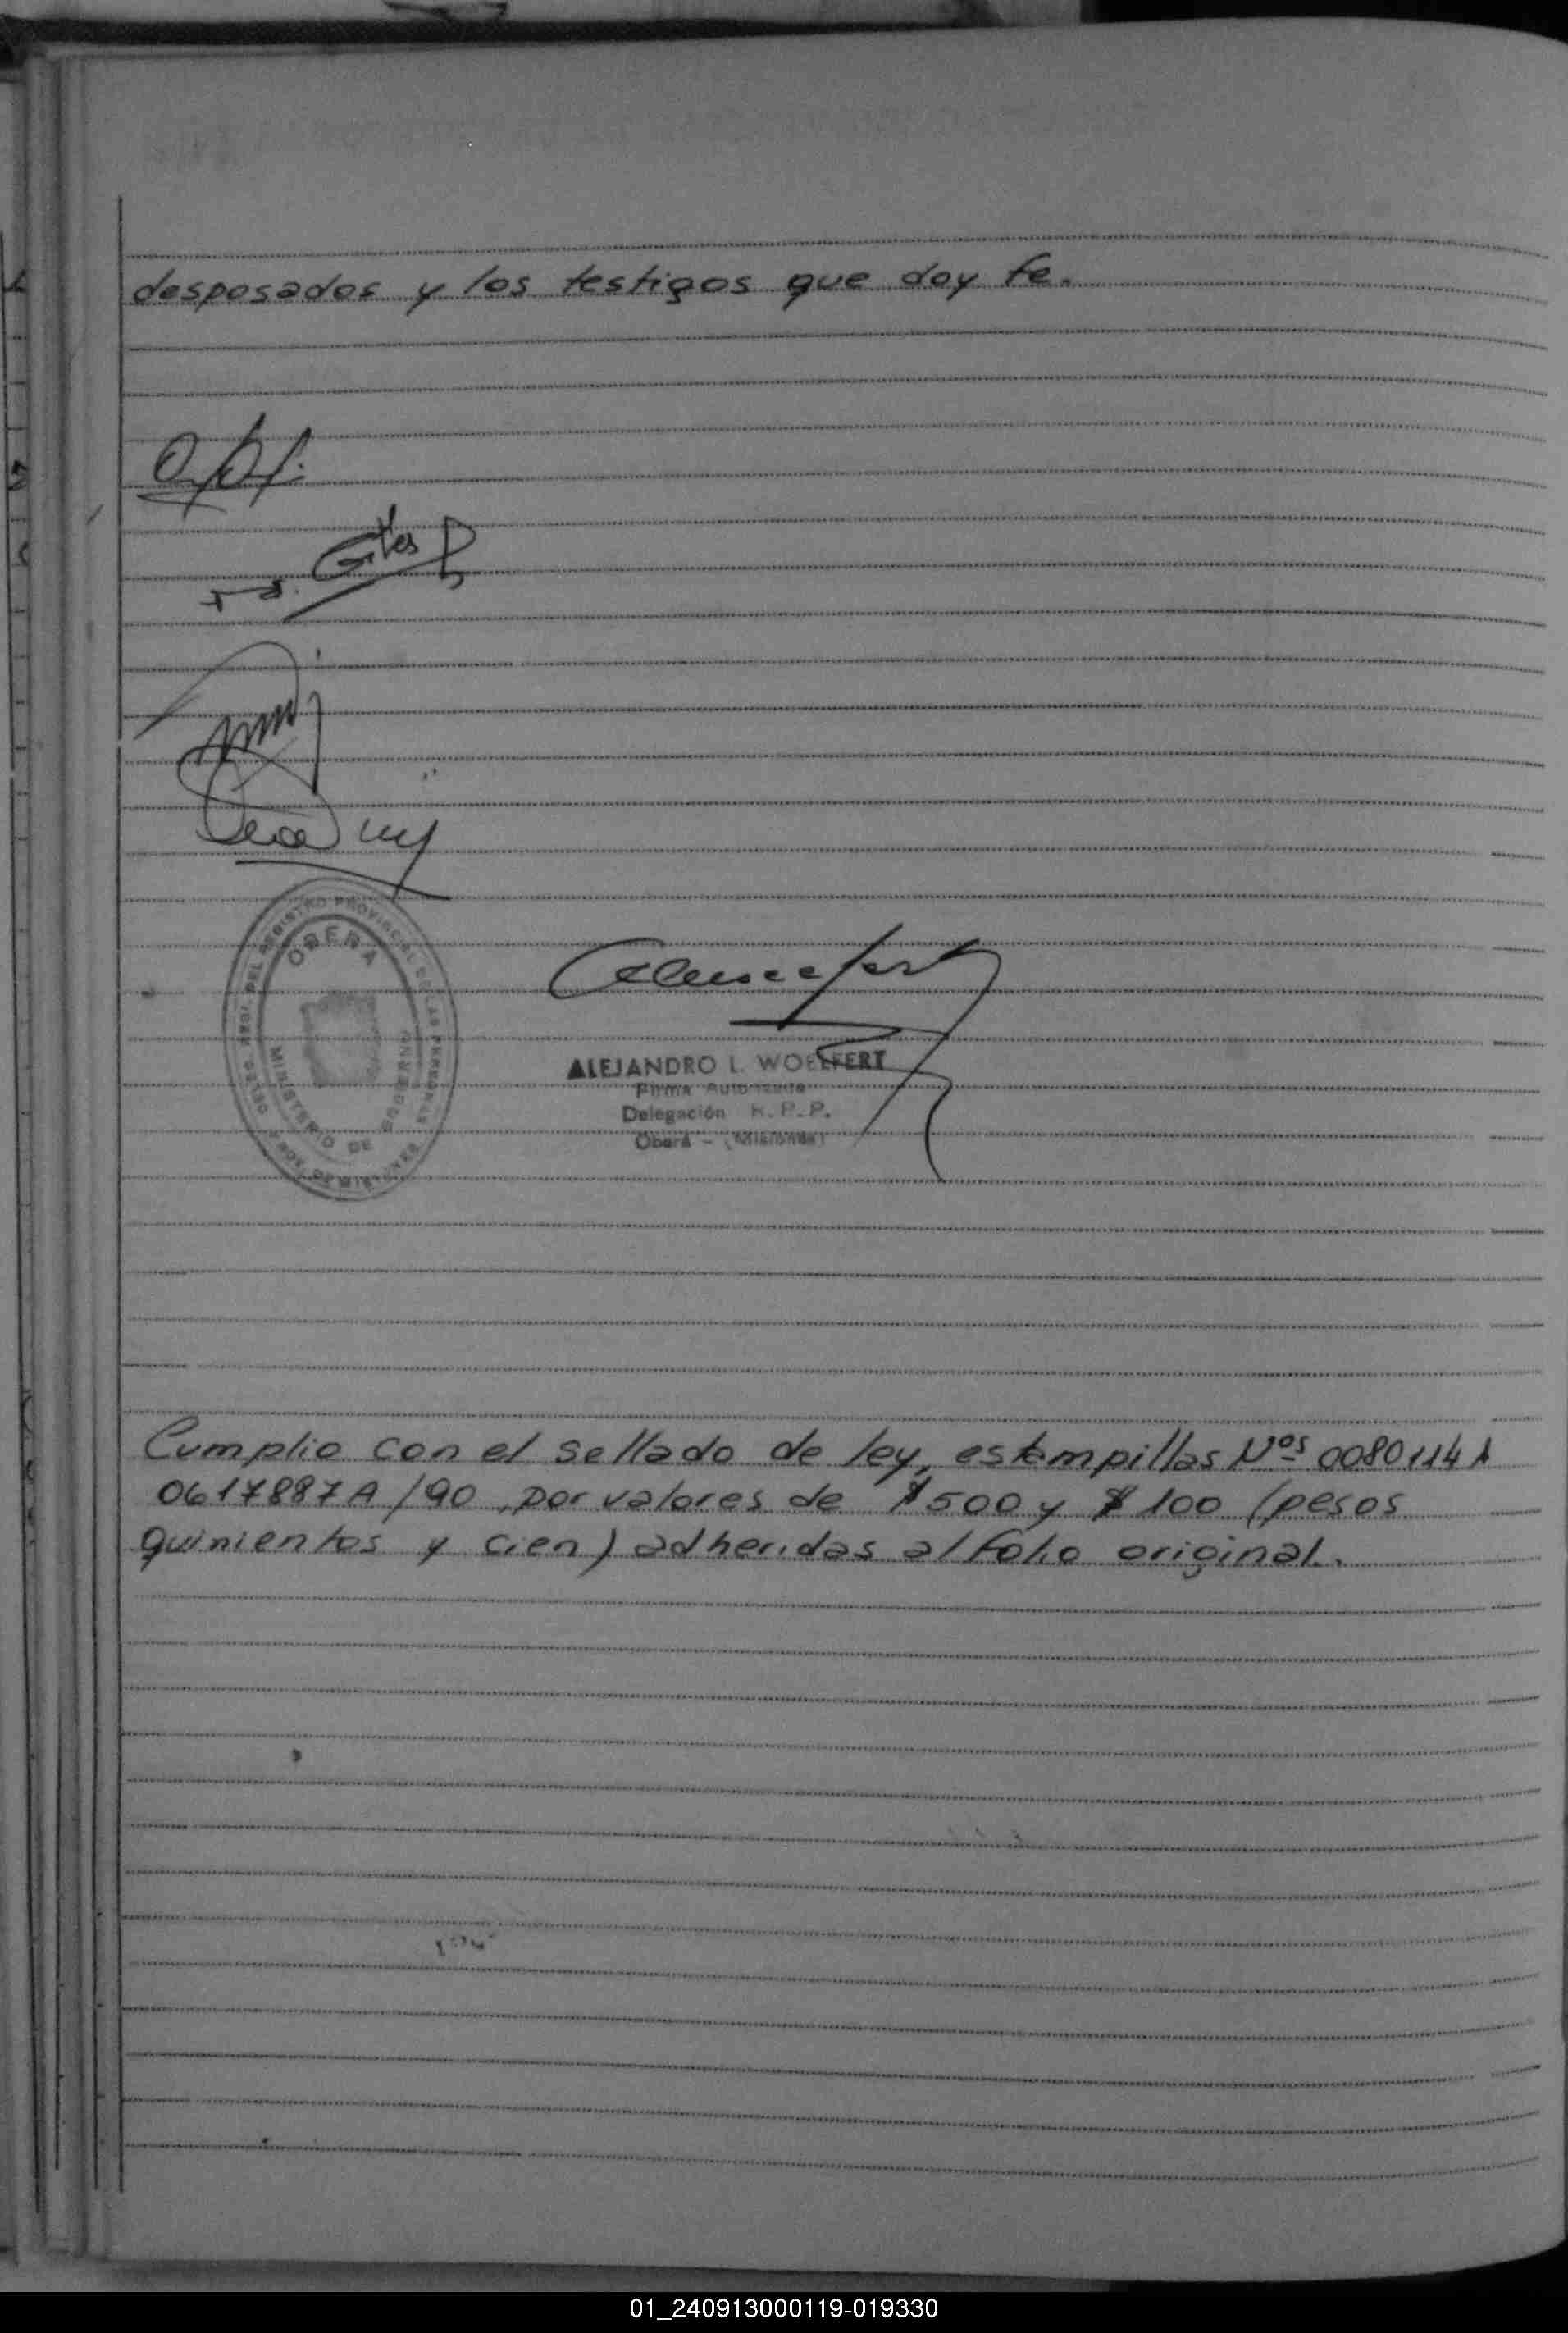 desposados y los testigos que doy fe.
OBERA
MINISTERIO DE GOBIERNO
ALEJANDRO L. WOELFERT
Firma Autorizada
Delegación R.P.P.
Oberá - (Misiones)
Cumplio con el sellado de ley, estampillas Nos 0080114A
0617887A/90, por valores de $500 y $100 (pesos
quinientos y cien) adheridas al folio original.
01_240913000119-019330